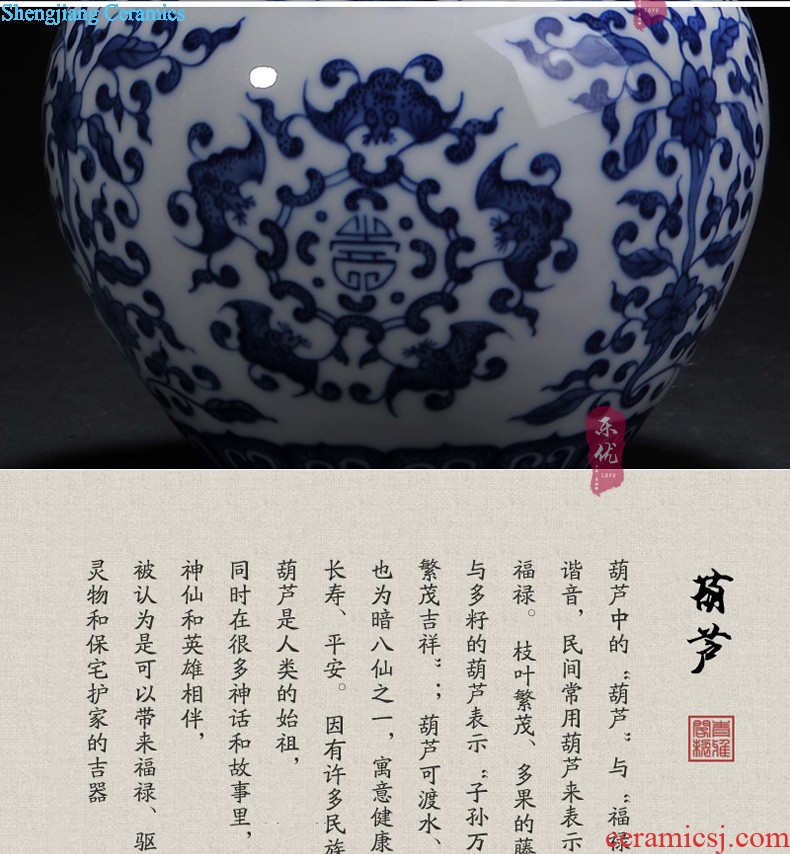 Shengjiang Ceramics
乐优
LOYO
葫芦
葫芦中的“葫芦”与“福禄
谐音，民间常用葫芦来表示
福禄。枝叶繁茂、多果的藤
与多籽的葫芦表示“子孙万
繁茂吉祥”；葫芦可渡水、
也为暗八仙之一，寓意健康
长寿、平安。因有许多民族
葫芦是人类的始祖，
同时在很多神话和故事里，
神仙和英雄相伴，
被认为是可以带来福禄、驱
灵物和保宅护家的吉器
ceramicsj.com